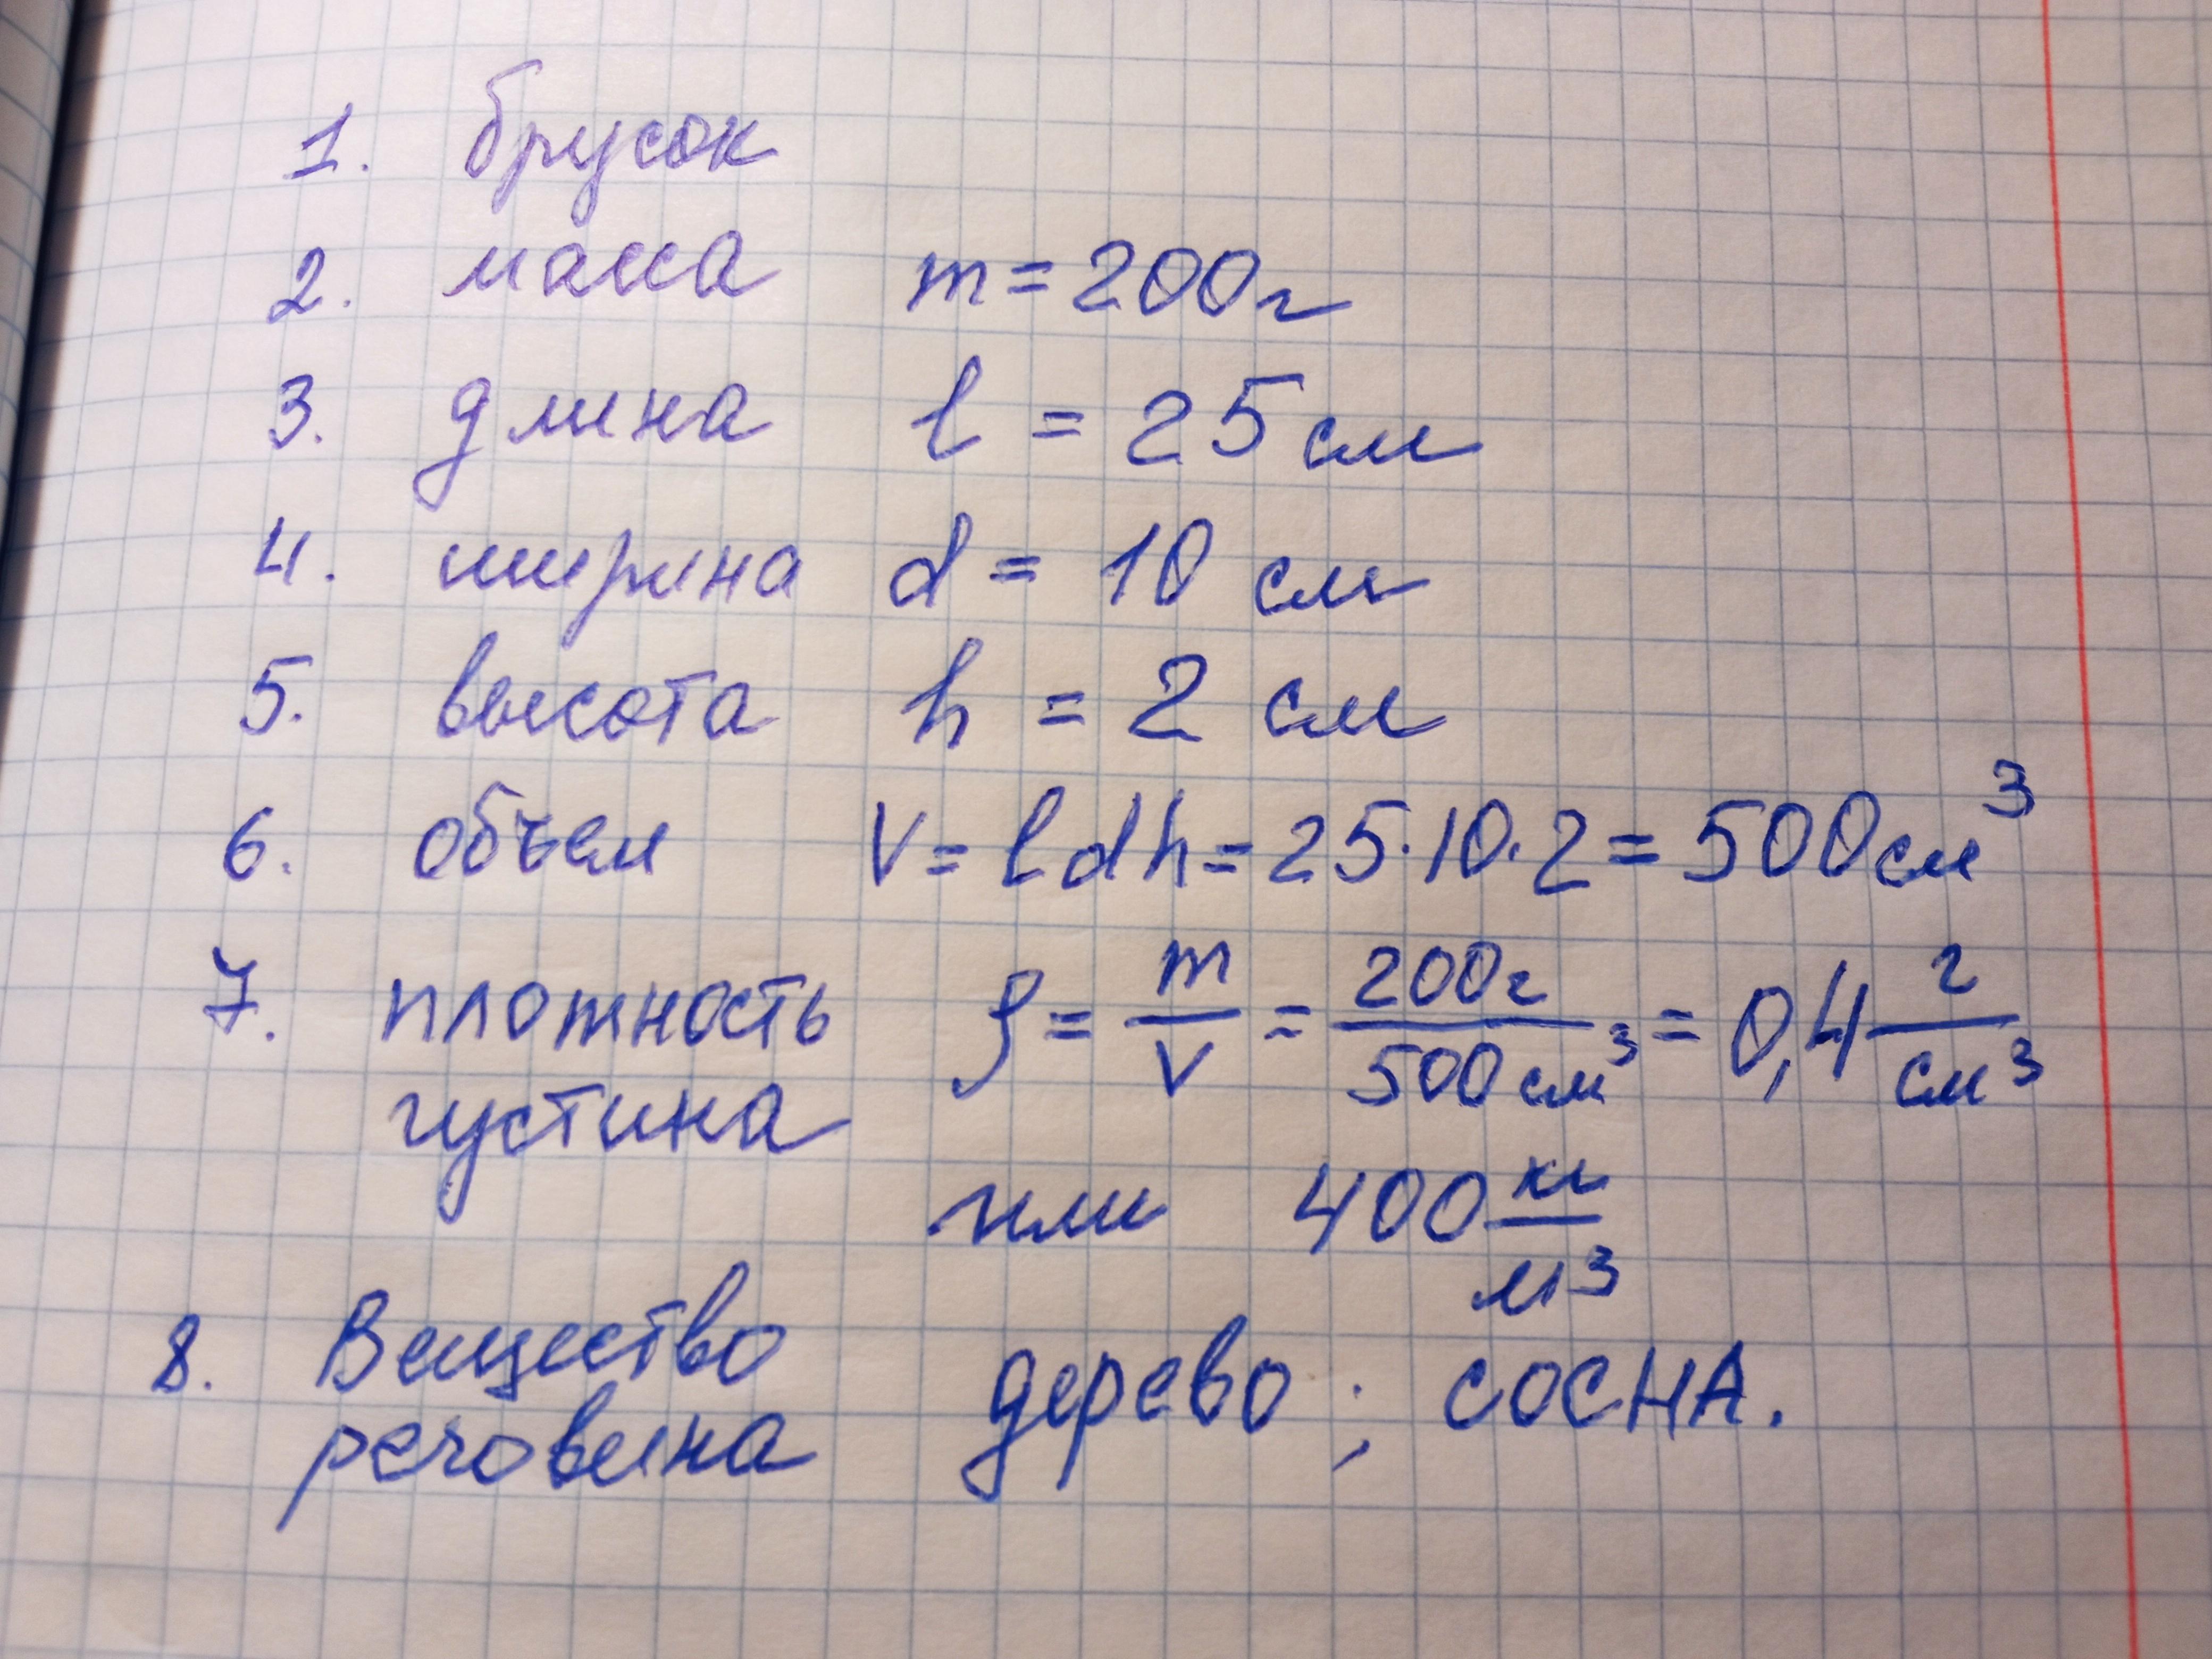 1. брусок
2. масса m = 200г
3. длина l = 25 см
4. ширина d = 10 см
5. высота h = 2 см
6. объем V = ldh = 25·10·2 = 500 см³
7. плотность ρ = m/V = 200г/500 см³ = 0,4 г/см³
густина
или 400 кг/м³
8. Вещество дерево; СОСНА.
речовина